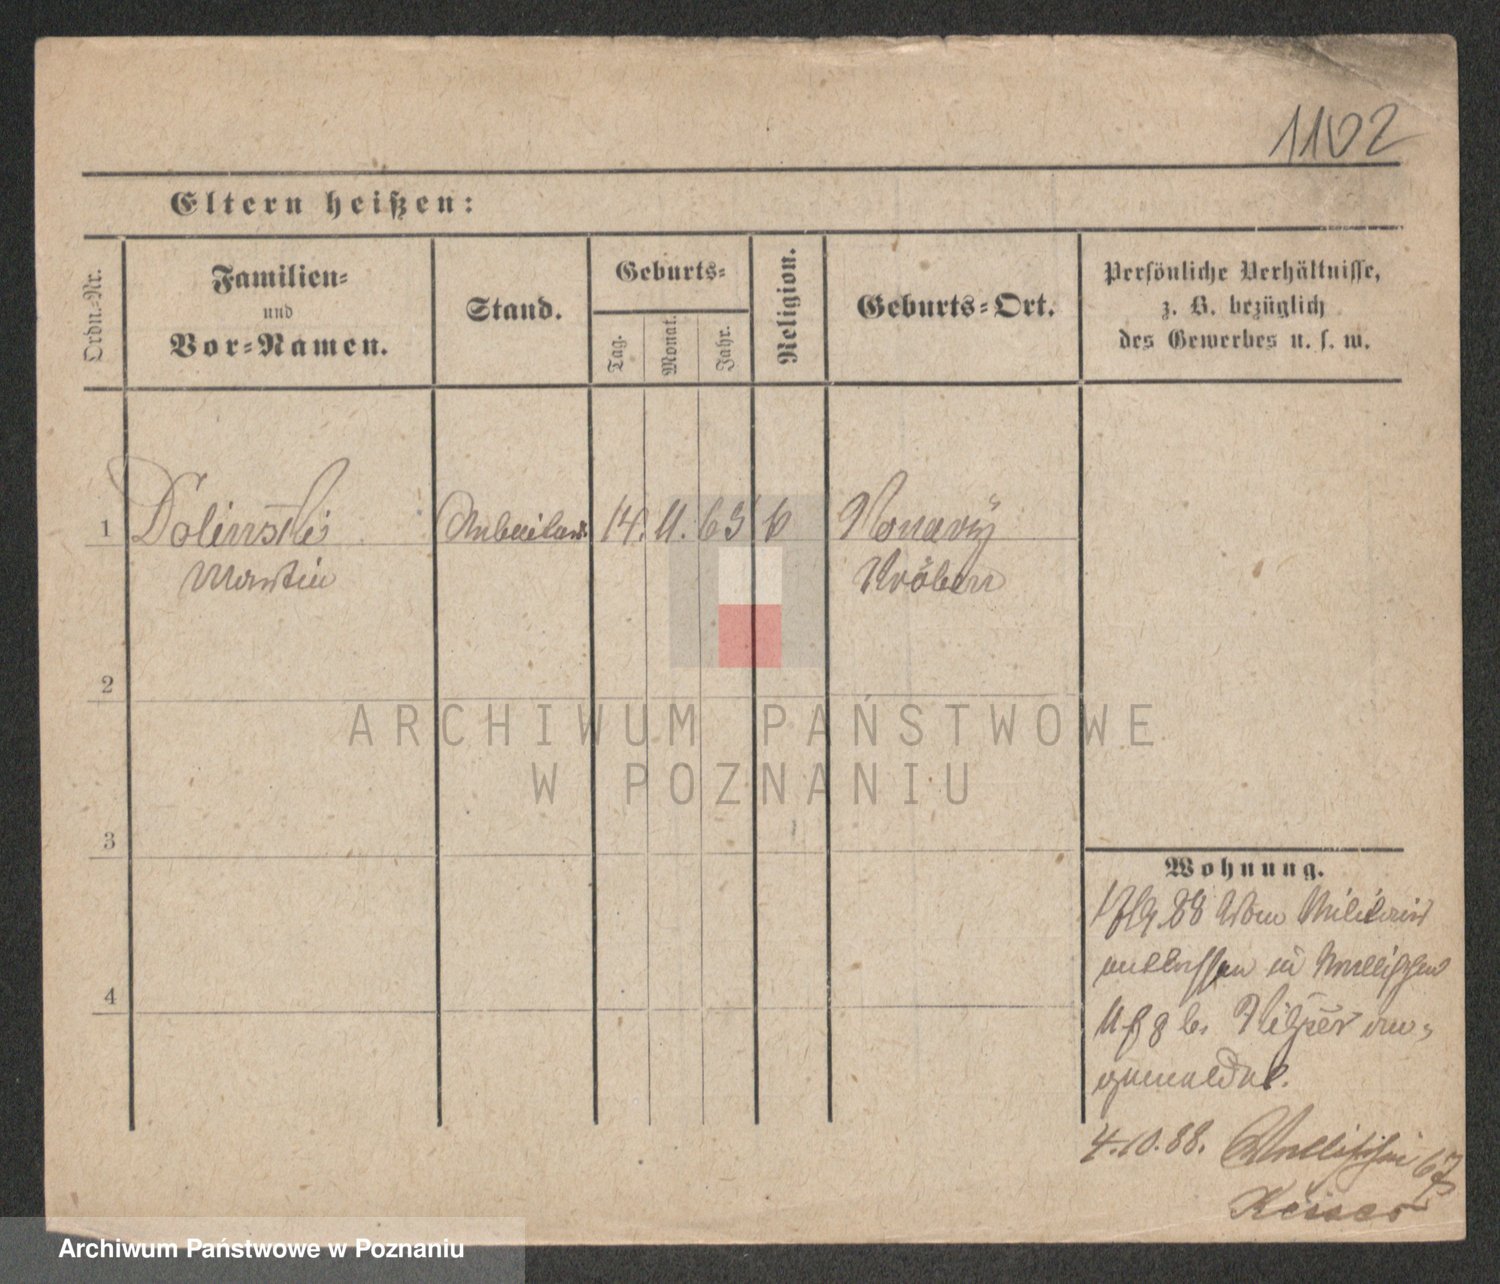 1102
Eltern heißen:
Ordn.-Nr.
Familien-
und
Vor-Namen.
Stand.
Geburts-
Tag.
Monat.
Jahr.
Religion.
Geburts-Ort.
Persönliche Verhältnisse,
z. B. bezüglich
des Gewerbes u. s. w.
1 Dolinski Arbeiter 14. 11. 63 k
Martin Kröben
2
3
4
ARCHIWUM PAŃSTWOWE
W POZNANIU
Wohnung.
88 Vom Militair
entlassen in
an-
gemeldet.
4.10.88.
Archiwum Państwowe w Poznaniu